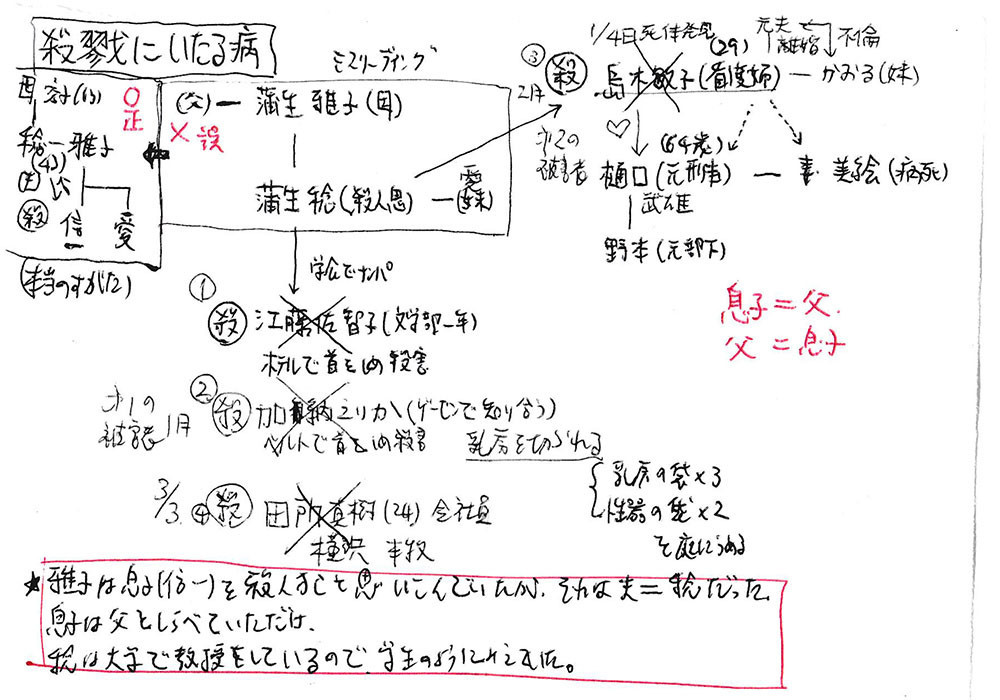 殺戮にいたる病
ミスリーディング
母 容子(65)
○正
稔一雅子
(43)
(夫)
殺
信
愛
(本当のすがた)
(父)ー蒲生 雅子(母)
×誤
蒲生 稔(殺人鬼)ー愛(妹)
学食でナンパ
①
殺 江藤佐智子(文学部一年)
ホテルで首をしめ殺害
②
オ1の
被害者
1月
殺 加納えりか(ゲーセンで知り合う)
ベルトで首をしめ殺害
乳房を切られる
乳房の袋×3
性器の袋×2
を庭にうめる
3/3 ④殺 田所真樹(24)会社員
横沢
1/4日死体発見
(29)
元夫
離婚
不倫
③
殺
2月
島木敏子(看護師)ーかおる(妹)
オ2の
被害者
♡
(64歳)
樋口(元刑事)ー妻 美絵(病死)
武雄
野本(元部下)
息子=父
父=息子
★雅子は息子(信一)を殺人すると思いこんでいたが、それは夫=稔だった
息子は父をしらべていただけ、
稔は大学で教授をしているので学生のようにみえました。